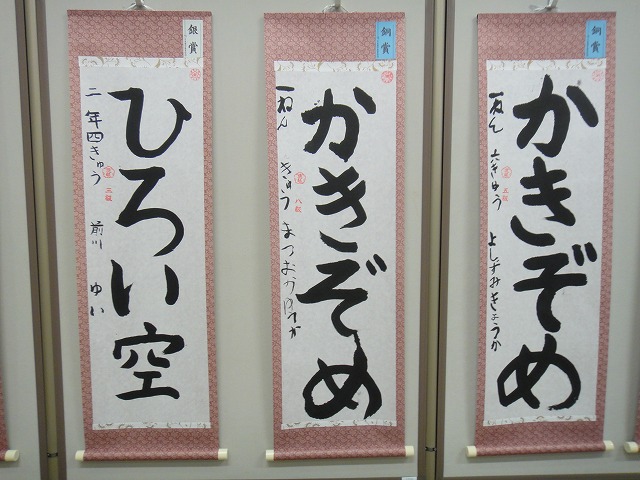 銀賞
ひろい空
三級
二年四きゅう 前川 ゆい
銅賞
かきぞめ
八級
一ねん きゅう まつおか
銅賞
かきぞめ
五級
一ねん 六きゅう よしずみきょうか